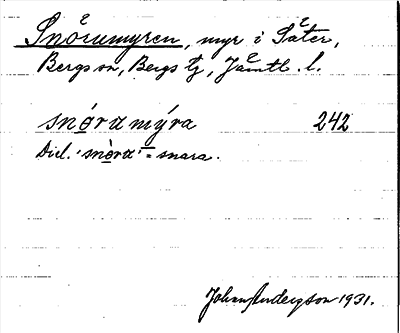 Snörumyren, myr i Säter,
Bergs sn, Bergs tg, Jämtl. l.
snǿramýra 242
Dial. 'snòra' = snara.
Johan Anderzson 1931.